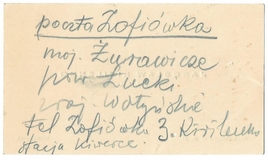 poczta Zofiówka
maj. Żurawicze
pow. Łucki
woj. Wołyńskie
tel Zofiówka 3.
stacja Kiwerce.